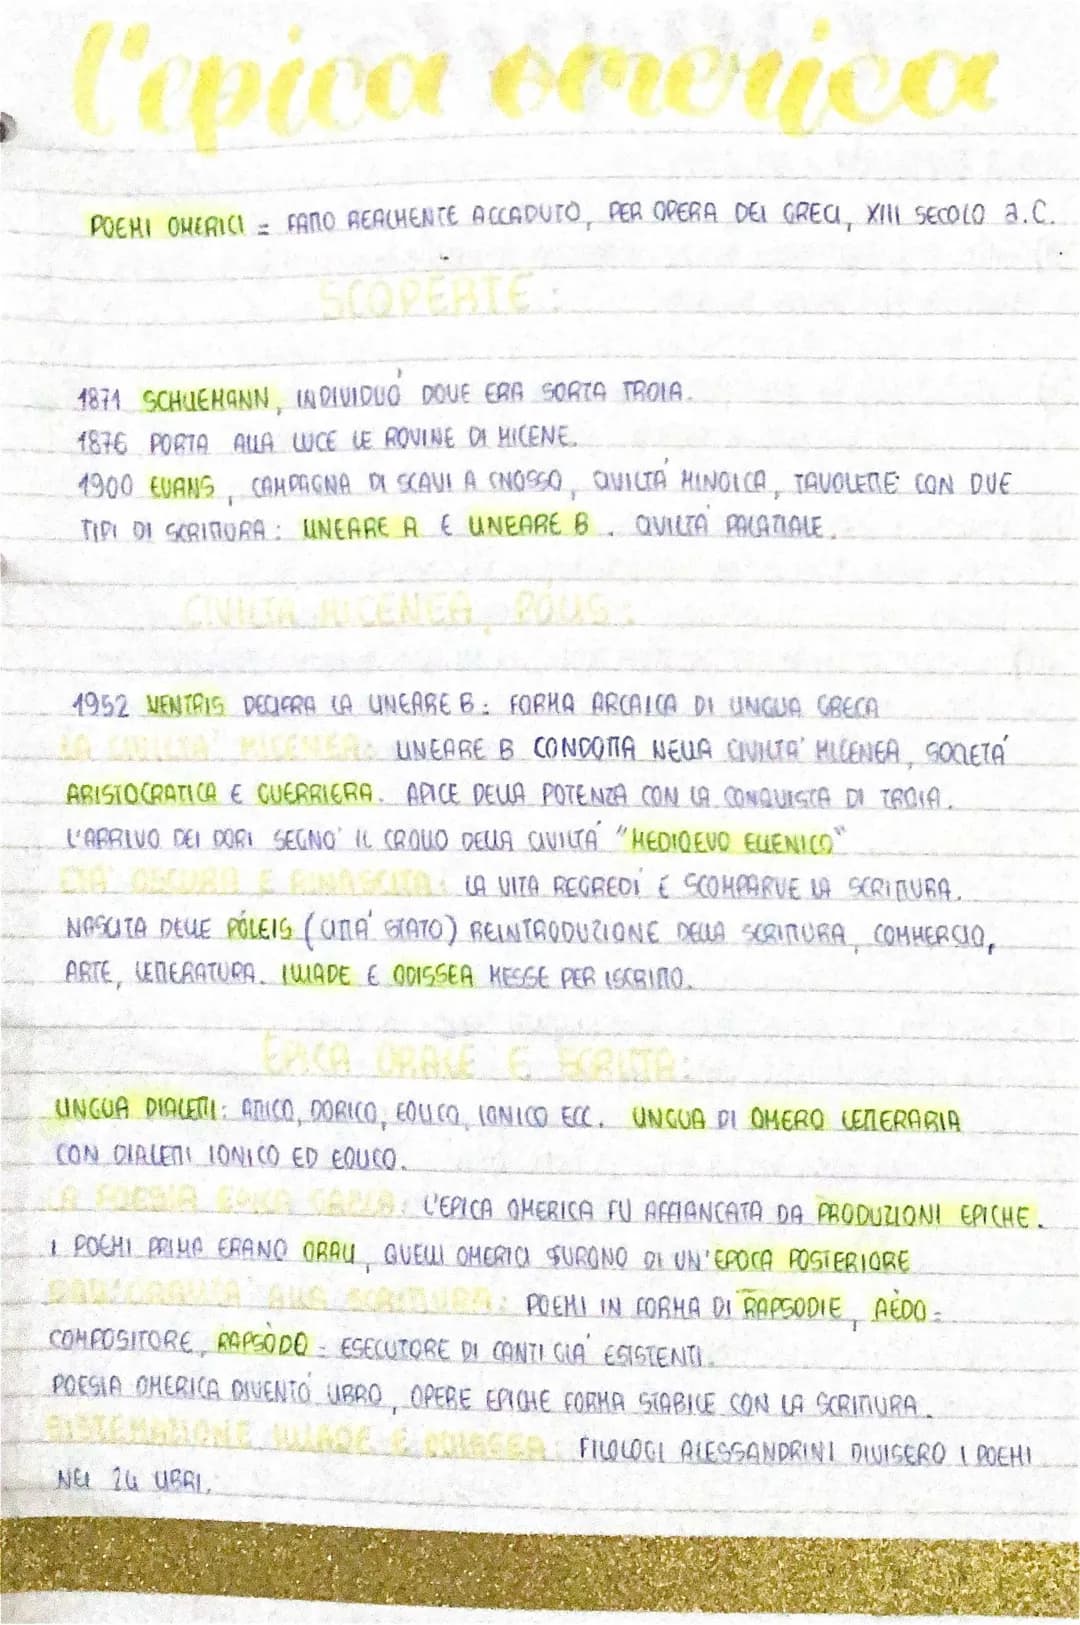 l'epica omerica
POEMI OMERICI = FATTO REALMENTE ACCADUTO, PER OPERA DEI GRECI, XIII SECOLO a.C.
SCOPERTE:
1871 SCHLIEMANN, INDIVIDUÒ DOVE ERA SORTA TROIA.
1876 PORTA ALLA LUCE LE ROVINE DI MICENE.
1900 EVANS, CAMPAGNA DI SCAVI A CNOSSO, CIVILTÀ MINOICA, TAVOLETTE CON DUE
TIPI DI SCRITTURA: LINEARE A E LINEARE B. CIVILTÀ PALATIALE.
CIVILTÀ MICENEA, POLIS:
1952 VENTRIS DECIFRA LA LINEARE B: FORMA ARCAICA DI LINGUA GRECA
LA CIVILTA' MICENEA: LINEARE B CONDOTTA NELLA CIVILTA' MICENEA, SOCIETA'
ARISTOCRATICA E GUERRIERA. APICE DELLA POTENZA CON LA CONQUISTA DI TROIA.
L'ARRIVO DEI DORI SEGNO' IL CROLLO DELLA CIVILTA' "MEDIOEVO ELLENICO"
ETA' OSCURA E RINASCITA: LA VITA REGREDÌ E SCOMPARVE LA SCRITTURA.
NASCITA DELLE PÓLEIS (CITTA' STATO) REINTRODUZIONE DELLA SCRITTURA, COMMERCIO,
ARTE, LETTERATURA. ILIADE E ODISSEA MESSE PER ISCRITTO.
EPICA ORALE E SCRITTA:
LINGUA DIALETTI: ATTICO, DORICO, EOLICO, IONICO ECC. LINGUA DI OMERO LETTERARIA
CON DIALETTI IONICO ED EOLICO.
LA POESIA EPICA GRECA: L'EPICA OMERICA FU AFFIANCATA DA PRODUZIONI EPICHE.
I POEMI PRIMA ERANO ORALI, QUELLI OMERICI FURONO DI UN'EPOCA POSTERIORE
DALL'ORALITA' ALLA SCRITTURA: POEMI IN FORMA DI RAPSODIE, AÈDO =
COMPOSITORE, RAPSÒDO = ESECUTORE DI CANTI GIA' ESISTENTI.
POESIA OMERICA DIVENTO' LIBRO, OPERE EPICHE FORMA STABILE CON LA SCRITTURA.
SISTEMAZIONE ILIADE E ODISSEA: FILOLOGI ALESSANDRINI DIVISERO I POEMI
NEI 24 LIBRI.